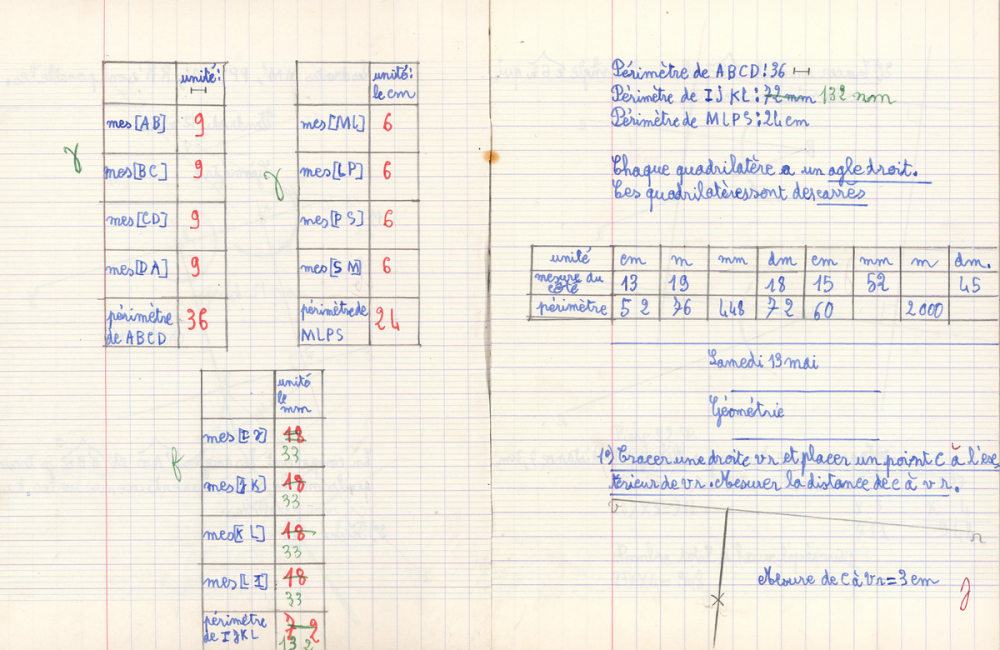 unité:
mes [AB] 9
mes [BC] 9
mes [CD] 9
mes [DA] 9
périmètre
de ABCD 36
unité:
le cm
mes [ML] 6
mes [LP] 6
mes [PS] 6
mes [SM] 6
périmètre de
MLPS 24
unité
le
mm
mes [IJ] 18
33
mes [JK] 18
33
mes [KL] 18
33
mes [LI] 18
33
périmètre
de IJKL 72
132
Périmètre de ABCD: 36
Périmètre de IJKL: 72 mm 132 mm
Périmètre de MLPS: 24 cm
Chaque quadrilatère a un agle droit.
Les quadrilatères sont des carrés
unité cm m mm dm cm mm m dm.
mesure du
côté 13 19 18 15 52 45
périmètre 52 76 448 72 60 2000
Samedi 13 mai
Géométrie
1°) Tracer une droite vr et placer un point C à l'ex-
térieur de vr. Mesurer la distance de c à vr.
v
r
Mesure de C à vr = 3 cm